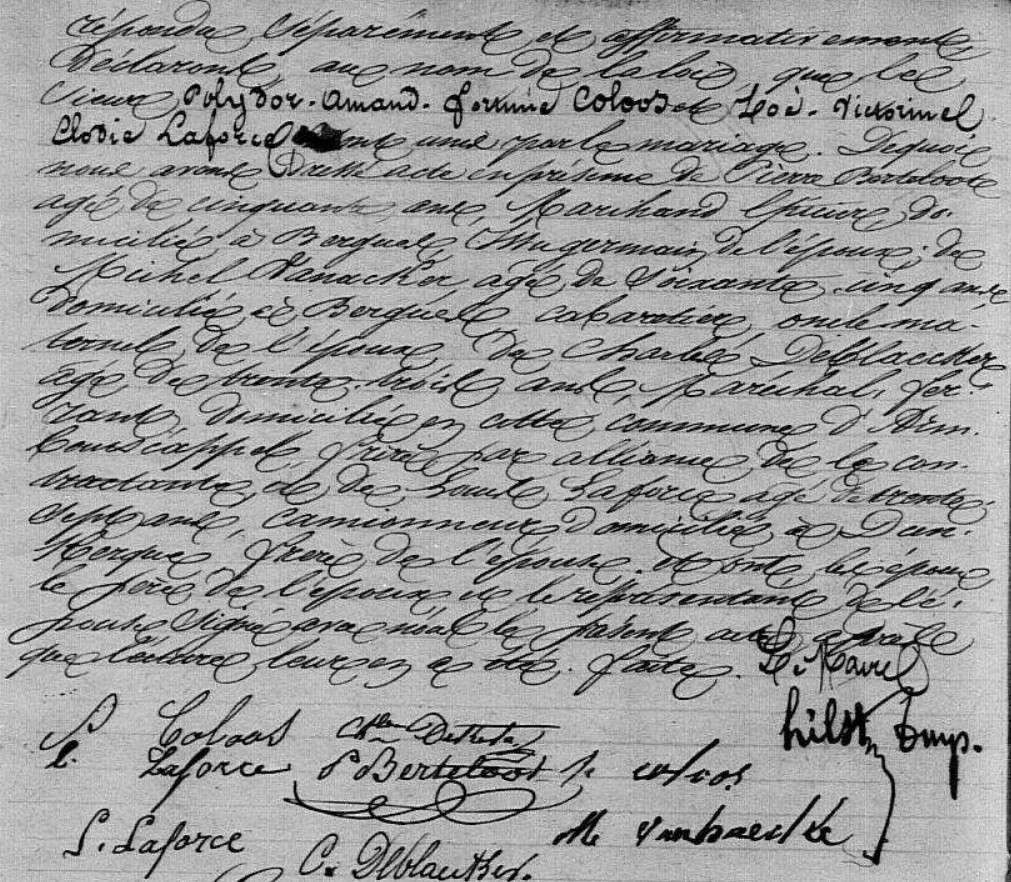 répondu séparément et affirmativement
Déclarons au nom de la loi, que les
Sieurs Polydor-Amand-Fortuné Coloos et Zoé-Victorine
Elodie Laforce sont unis par le mariage. De quoi
nous avons Dressé acte en présence de Pierre Berteloot
agé de cinquante ans, Marchand Epicier, do-
micilié à Bergues, germain de l'époux; de
Michel Vanacker, agé de soixante cinq ans
domicilié à Bergues cabaretier, oncle ma-
ternel de l'époux, de Charles Deblaecker
agé de trente-trois ans, Maréchal fer-
rant, domicilié en cette commune d'
cappel, frère par alliance de la con-
tractante, et de Louis Laforce agé de trente
sept ans, camionneur domicilié à Dun-
kerque frère de l'épouse. et ont les époux
le père de l'époux et le représentant de l'é-
pouse signé avec nous le présent acte après
que lecture leur en a été faite.
P. Coloos
L. Laforce P Berteloot
L. Laforce
C. Deblaecker